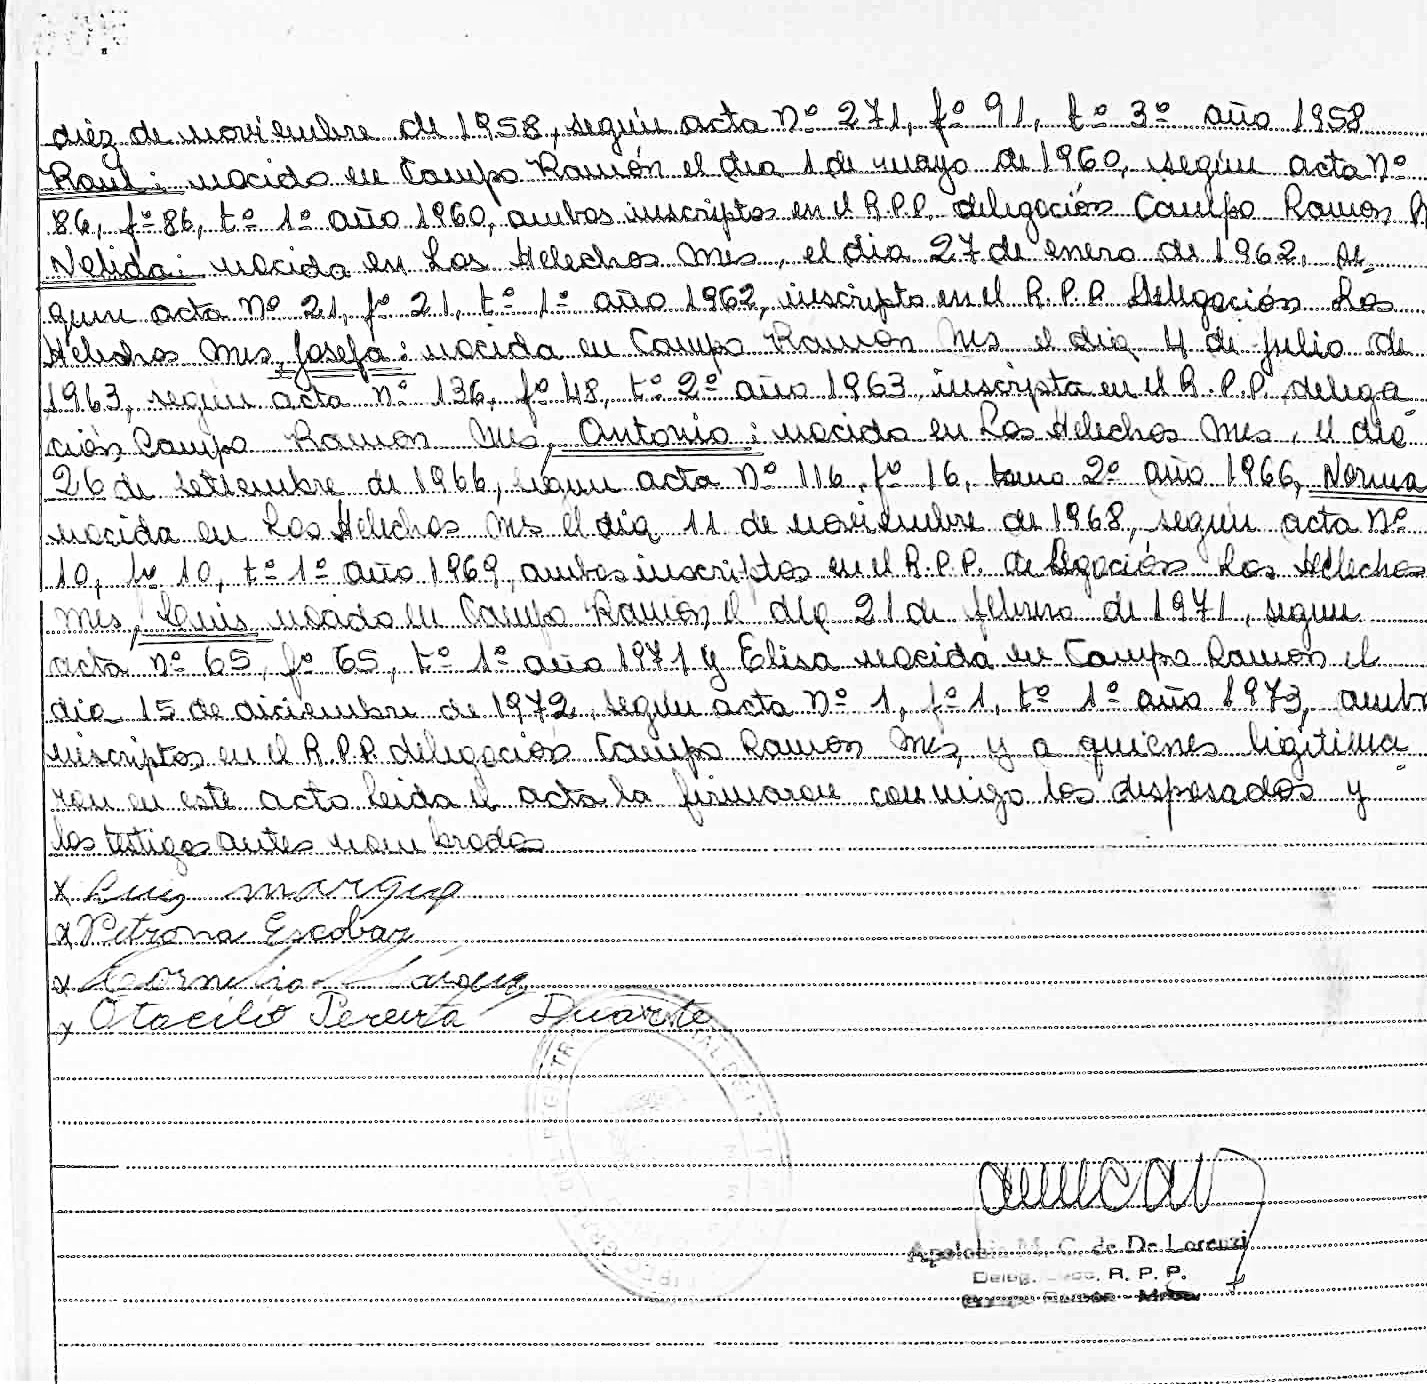 diez de noviembre de 1958, según acta nº 271, fº 91, tº 3º año 1958
Raul: nacido en Campo Ramón el dia 1 de mayo de 1960, según acta nº
86, fº 86, tº 1º año 1960, ambos inscriptos en el R.P.P. delegación Campo Ramon
Nelida: nacida en Los Helechos Mnes, el dia 27 de enero de 1962, se-
gun acta nº 21, fº 21, tº 1º año 1962, inscripta en el R.P.P. Delegación Los
Helechos Mnes, Josefa: nacida en Campo Ramón Mnes el dia 4 de julio de
1963, según acta nº 136, fº 48, tº 2º año 1963, inscripta en el R.P.P. delega
ción Campo Ramon Mnes, Antonio: nacido en Los Helechos Mnes, el dia
26 de setiembre de 1966, segun acta nº 116, fº 16, tomo 2º año 1966, Norma
nacida en Los Helechos Mnes el dia 11 de noviembre de 1968, según acta nº
10, fº 10, tº 1º año 1969, ambos inscriptos en el R.P.P. delegación Los Helechos
Mnes, Luis nacido en Campo Ramón el dia 21 de febrero de 1971, segun
acta nº 65, fº 65, tº 1º año 1971 y Elisa nacida en Campo Ramón el
dia 15 de diciembre de 1972, según acta nº 1, fº 1, tº 1º año 1973, amb
inscriptos en el R.P.P. delegación Campo Ramon Mnes, y a quienes legitima
ron en este acto leida el acta la firmaron conmigo los desposados y
los testigos antes nombrados
x Luis marque
x Petrona Escobar
x Cornelio
x Otacilio Pereira Duarte
M. C. de De Lorenzi
Deleg. R. P. P.